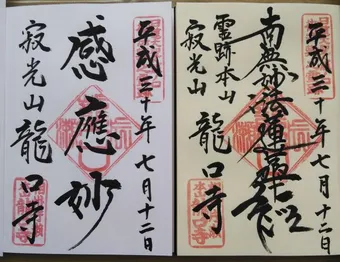 平成三十年七月十二日
感應妙
寂光山 龍口寺
平成三十年七月十二日
南無妙法蓮華経
霊跡本山
寂光山 龍口寺